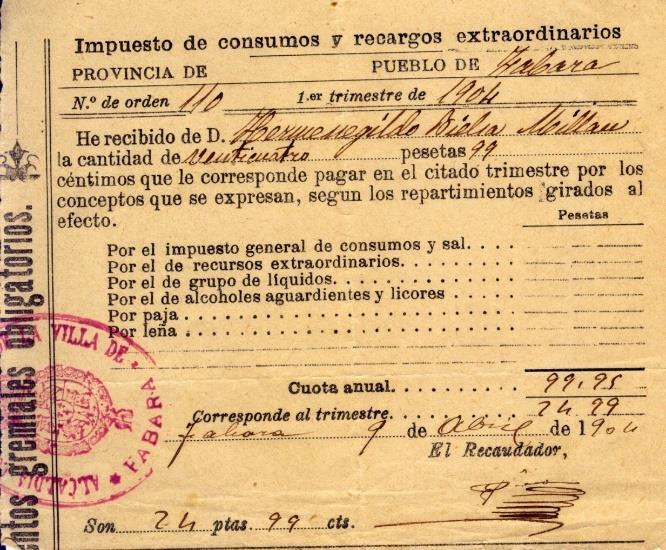 Impuesto de consumos y recargos extraordinarios
PROVINCIA DE PUEBLO DE Fabara
N.º de orden 110 1.er trimestre de 1904
He recibido de D. Hermenegildo Bielsa Millan
la cantidad de venticuatro pesetas 99
céntimos que le corresponde pagar en el citado trimestre por los
conceptos que se expresan, según los repartimientos girados al
efecto.
Pesetas
Por el impuesto general de consumos y sal.
Por el de recursos extraordinarios.
Por el de grupo de líquidos.
Por el de alcoholes aguardientes y licores
Por paja
Por leña
Cuota anual. 99.95
Corresponde al trimestre. 24 99
Fabara 9 de Abril de 1904
El Recaudador,
Son 24 ptas. 99 cts.
entos gremiales obligatorios.
VILLA DE FABARA
ALCALDIA